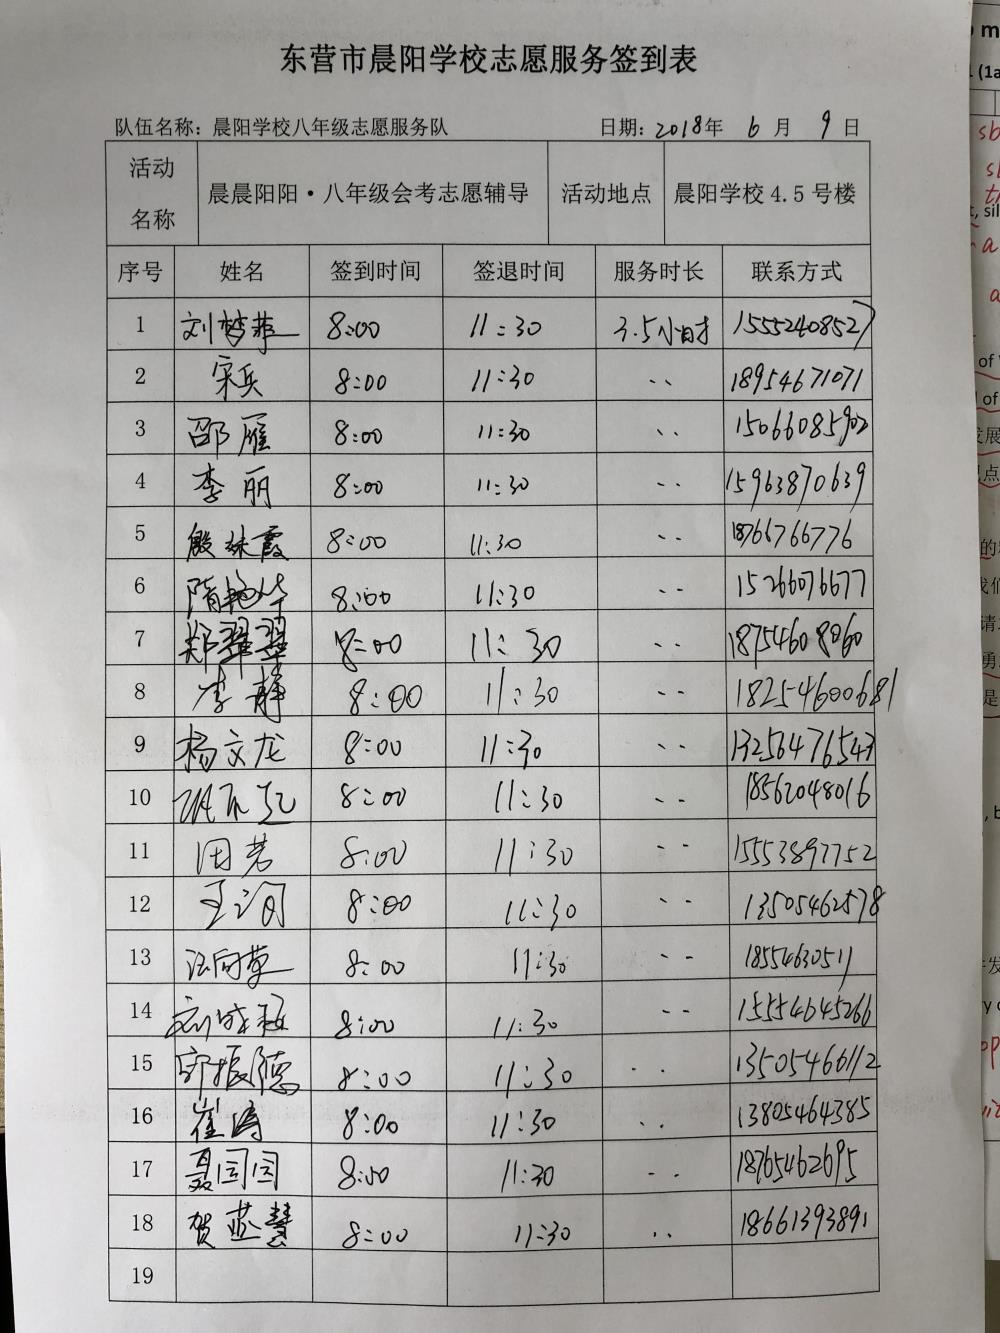 东营市晨阳学校志愿服务签到表
队伍名称：晨阳学校八年级志愿服务队 日期：2018年 6 月 9 日
活动名称 晨晨阳阳·八年级会考志愿辅导 活动地点 晨阳学校4.5号楼
序号 姓名 签到时间 签退时间 服务时长 联系方式
1 刘梦菲 8:00 11:30 3.5小时 15552408527
2 宋兵 8:00 11:30 .. 18954671071
3 邵雁 8:00 11:30 .. 15066085902
4 李丽 8:00 11:30 .. 15963870639
5 殷咏霞 8:00 11:30 .. 18766766776
6 隋艳华 8:00 11:30 .. 15266076677
7 郑翠翠 8:00 11:30 .. 18754608060
8 李静 8:00 11:30 .. 18254600681
9 杨文龙 8:00 11:30 .. 13256476543
10 8:00 11:30 .. 18562048016
11 田茗 8:00 11:30 .. 15553897752
12 王洵 8:00 11:30 .. 13505462578
13 8:00 11:30 .. 18554630511
14 8:00 11:30 .. 15554645266
15 8:00 11:30 .. 13505466112
16 崔涛 8:00 11:30 .. 13805464385
17 聂园园 8:00 11:30 .. 18765462695
18 贺燕慧 8:00 11:30 .. 18661393891
19